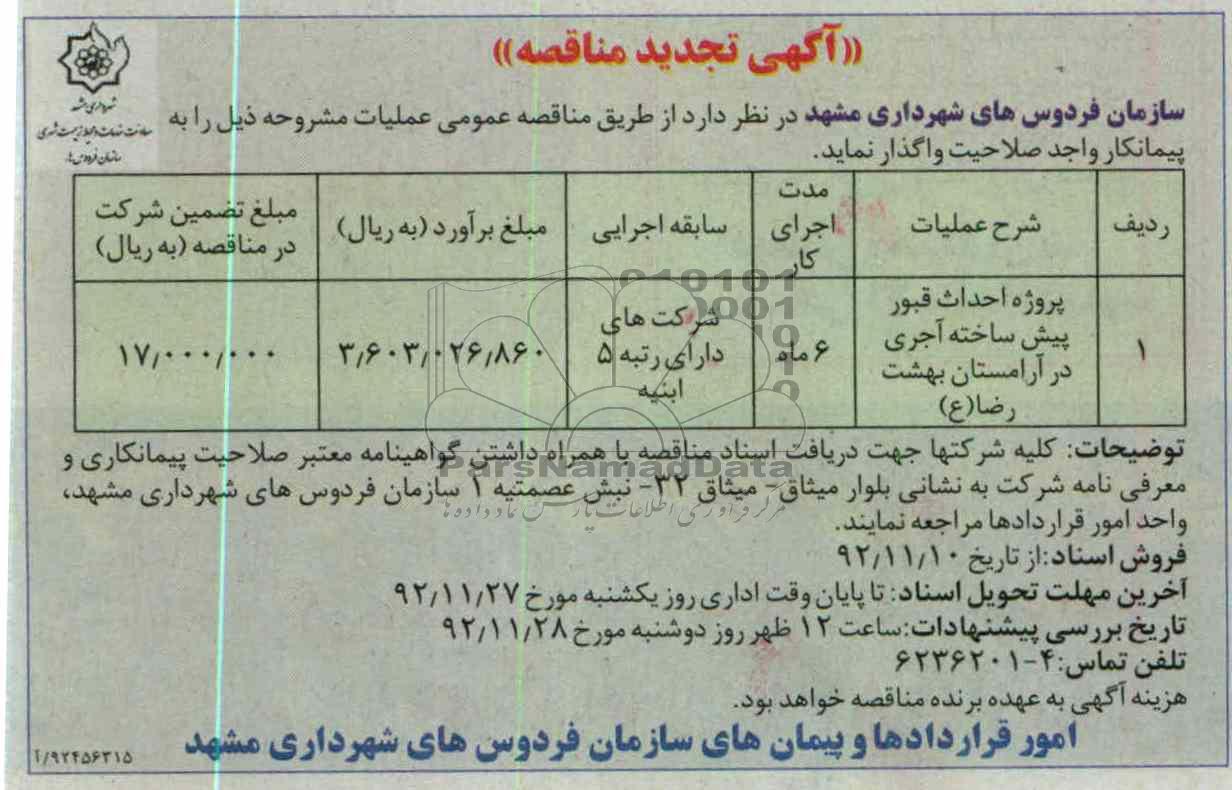 ((آگهی تجدید مناقصه))
شهرداری مشهد
معاونت خدمات و محیط زیست شهری
سازمان فردوس ها
سازمان فردوس های شهرداری مشهد در نظر دارد از طریق مناقصه عمومی عملیات مشروحه ذیل را به
پیمانکار واجد صلاحیت واگذار نماید.
ردیف | شرح عملیات | مدت اجرای کار | سابقه اجرایی | مبلغ برآورد (به ریال) | مبلغ تضمین شرکت در مناقصه (به ریال)
۱ | پروژه احداث قبور پیش ساخته آجری در آرامستان بهشت رضا(ع) | ۶ ماه | شرکت های دارای رتبه ۵ ابنیه | ۳٫۶۰۳٫۰۲۶٫۸۶۰ | ۱۷٫۰۰۰٫۰۰۰
توضیحات: کلیه شرکتها جهت دریافت اسناد مناقصه با همراه داشتن گواهینامه معتبر صلاحیت پیمانکاری و
معرفی نامه شرکت به نشانی بلوار میثاق- میثاق ۳۲- نبش عصمتیه ۱ سازمان فردوس های شهرداری مشهد،
واحد امور قراردادها مراجعه نمایند.
فروش اسناد:از تاریخ ۹۲٫۱۱٫۱۰
آخرین مهلت تحویل اسناد: تا پایان وقت اداری روز یکشنبه مورخ ۹۲٫۱۱٫۲۷
تاریخ بررسی پیشنهادات:ساعت ۱۲ ظهر روز دوشنبه مورخ ۹۲٫۱۱٫۲۸
تلفن تماس:۴-۶۲۳۶۲۰۱
هزینه آگهی به عهده برنده مناقصه خواهد بود.
امور قراردادها و پیمان های سازمان فردوس های شهرداری مشهد
۹۲۴۵۶۳۱۵/آ
ParsNamadData